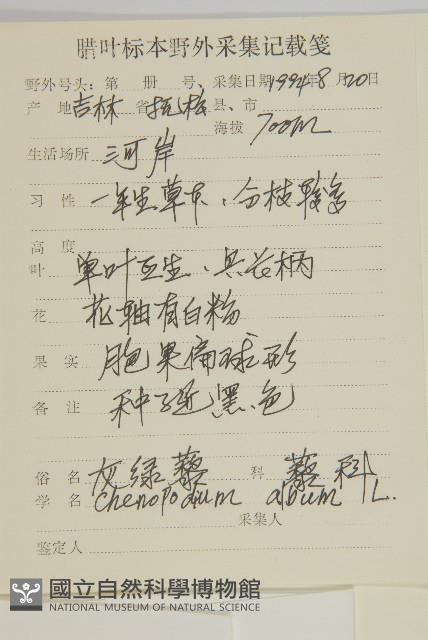 腊叶标本野外采集记载笺
野外号头：第 册 号、采集日期1994年8月20日
产 地吉林 省抚松县、市
海拔 700m
生活场所 河岸
习 性 一年生草本、分枝较多
高 度
叶 单叶互生、具长柄
花 花轴有白粉
果 实 胞果扁球形
备 注 种子近黑色
俗 名 灰绿藜 科 藜科
学 名 Chenopodium album L.
采集人
鉴定人
國立自然科學博物館
NATIONAL MUSEUM OF NATURAL SCIENCE